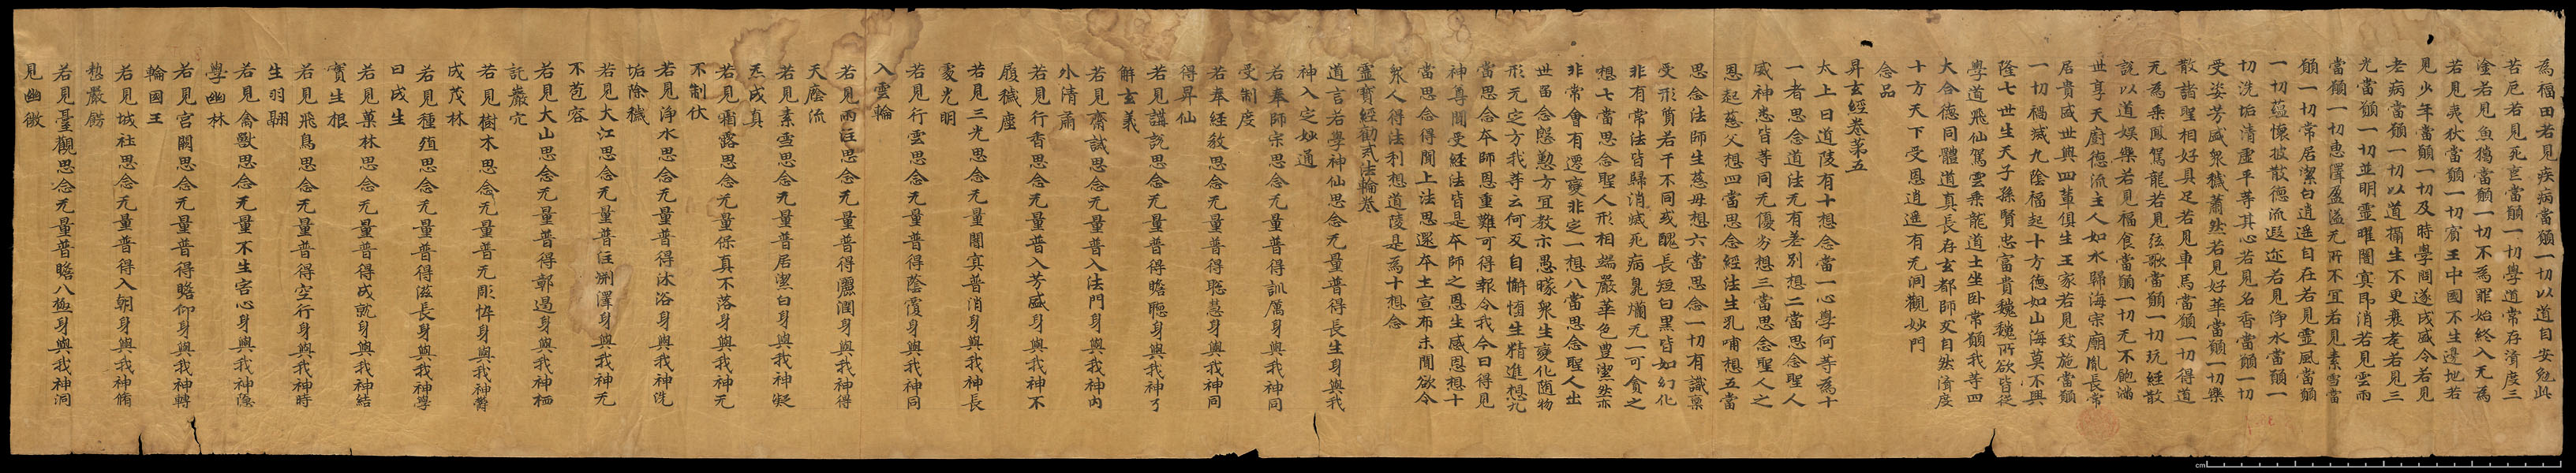 為福田若見疾病當願一切以道自安免此
苦厄若見死亡當願一切學道常存濟度三
塗若見魚獵當願一切不為罪始終入无為
若見夷狄當願一切賓王中國不生邊地若
見少年當願一切及時學問遂成盛令若見
老病當願一切以道攝生不更衰耄若見三
光當願一切並明靈曜闇冥即消若見雲雨
當願一切惠澤盈溢无所不宜若見素雪當
願一切常居潔白逍遥自在若見靈風當願
一切蘊懷披散德流遐迩若見淨水當願一
切洗垢清虛平等其心若見名香當願一切
受姿芳盛衆穢蕭然若見好華當願一切樂
散諸聖相好具足若見車馬當願一切得道
无為乘鳳駕龍若見弦歌當願一切玩經散
說以道娛樂若見福食當願一切无不飽滿
世享天廚德流主人如水歸海宗廟胤長常
居貴盛世與四輩俱生王家若見致施當願
一切禍滅九陰福起十方德如山海莫不興
隆七世生天子孫賢忠富貴巍巍所欲皆從
學道飛仙駕雲乘龍道士坐卧常願我等四
大合德同體道真長存玄都師友自然濟度
十方天下受恩逍遥有无洞觀妙門
念品
昇玄經卷第五
太上曰道陵有十想念當一心學何等為十
一者思念道法无有差別想二當思念聖人
威神悉皆等同无優劣想三當思念聖人之
恩起慈父想四當思念經法生乳哺想五當
思念法師生慈母想六當思念一切有識稟
受形質若干不同或醜長短白黑皆如幻化
非有常法皆歸消滅死病臭爛无一可貪之
想七當思念聖人形相端嚴華色豊潔然亦
非常會有遷變非定一想八當思念聖人出
世留念慇懃方宜教示愚矇衆生變化随物
形无定方我等云何反自懈惰生精進想九
當思念本師恩重難可得報令我今日得見
神尊聞受經法皆是本師之恩生感恩想十
當思念得聞上法思還本土宣布未聞欲令
衆人得法利想道陵是為十想念
靈寶經勸戒法輪卷
道言若學神仙思念无量普得長生身與我
神入定妙通
若奉師宗思念无量普得訓厲身與我神同
受制度
若奉經教思念无量普得聡慧身與我神同
得昇仙
若見講說思念无量普得瞻聽身與我神了
解玄義
若見齋誡思念无量普入法門身與我神内
外清肅
若見行香思念无量普入芳盛身與我神不
履穢塵
若見三光思念无量闇冥普消身與我神長
處光明
若見行雲思念无量普得蔭覆身與我神同
入雲輪
若見雨䨟思念无量普得灑潤身與我神得
天廕流
若見素雪思念无量普居潔白身與我神凝
炁成真
若見霜露思念无量保真不落身與我神无
不制伏
若見淨水思念无量普得沐浴身與我神洗
垢除穢
若見大江思念无量普注渊澤身與我神无
不苞容
若見大山思念无量普得鄣遏身與我神栖
託巖穴
若見樹木思念无量普无彫悴身與我神欝
成茂林
若見種殖思念无量普得滋長身與我神學
日成生
若見菓林思念无量普得成就身與我神結
實生根
若見飛鳥思念无量普得空行身與我神時
生羽翮
若見禽獸思念无量不生害心身與我神隂
學幽林
若見宮闕思念无量普得瞻仰身與我神轉
輪國王
若見城社思念无量普得入朝身與我神脩
整嚴餝
若見臺觀思念无量普瞻八極身與我神洞
見幽微